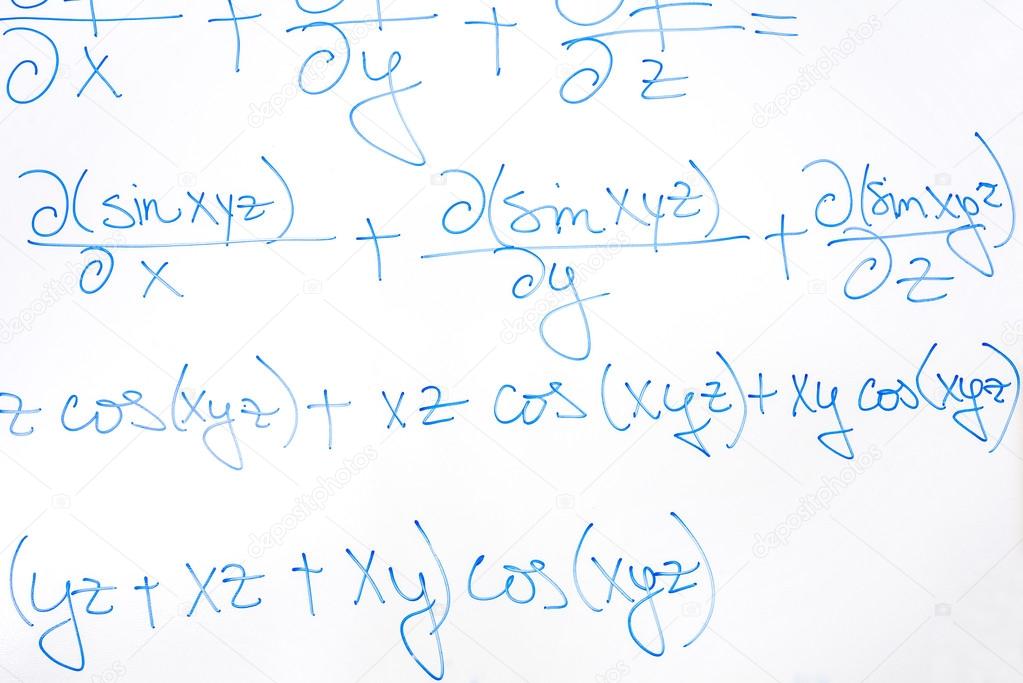 ∂x + ∂y + ∂z =
∂(sin xyz)/∂x + ∂(sin xyz)/∂y + ∂(sin xyz)/∂z
z cos(xyz) + xz cos(xyz) + xy cos(xyz)
(yz + xz + xy) cos(xyz)